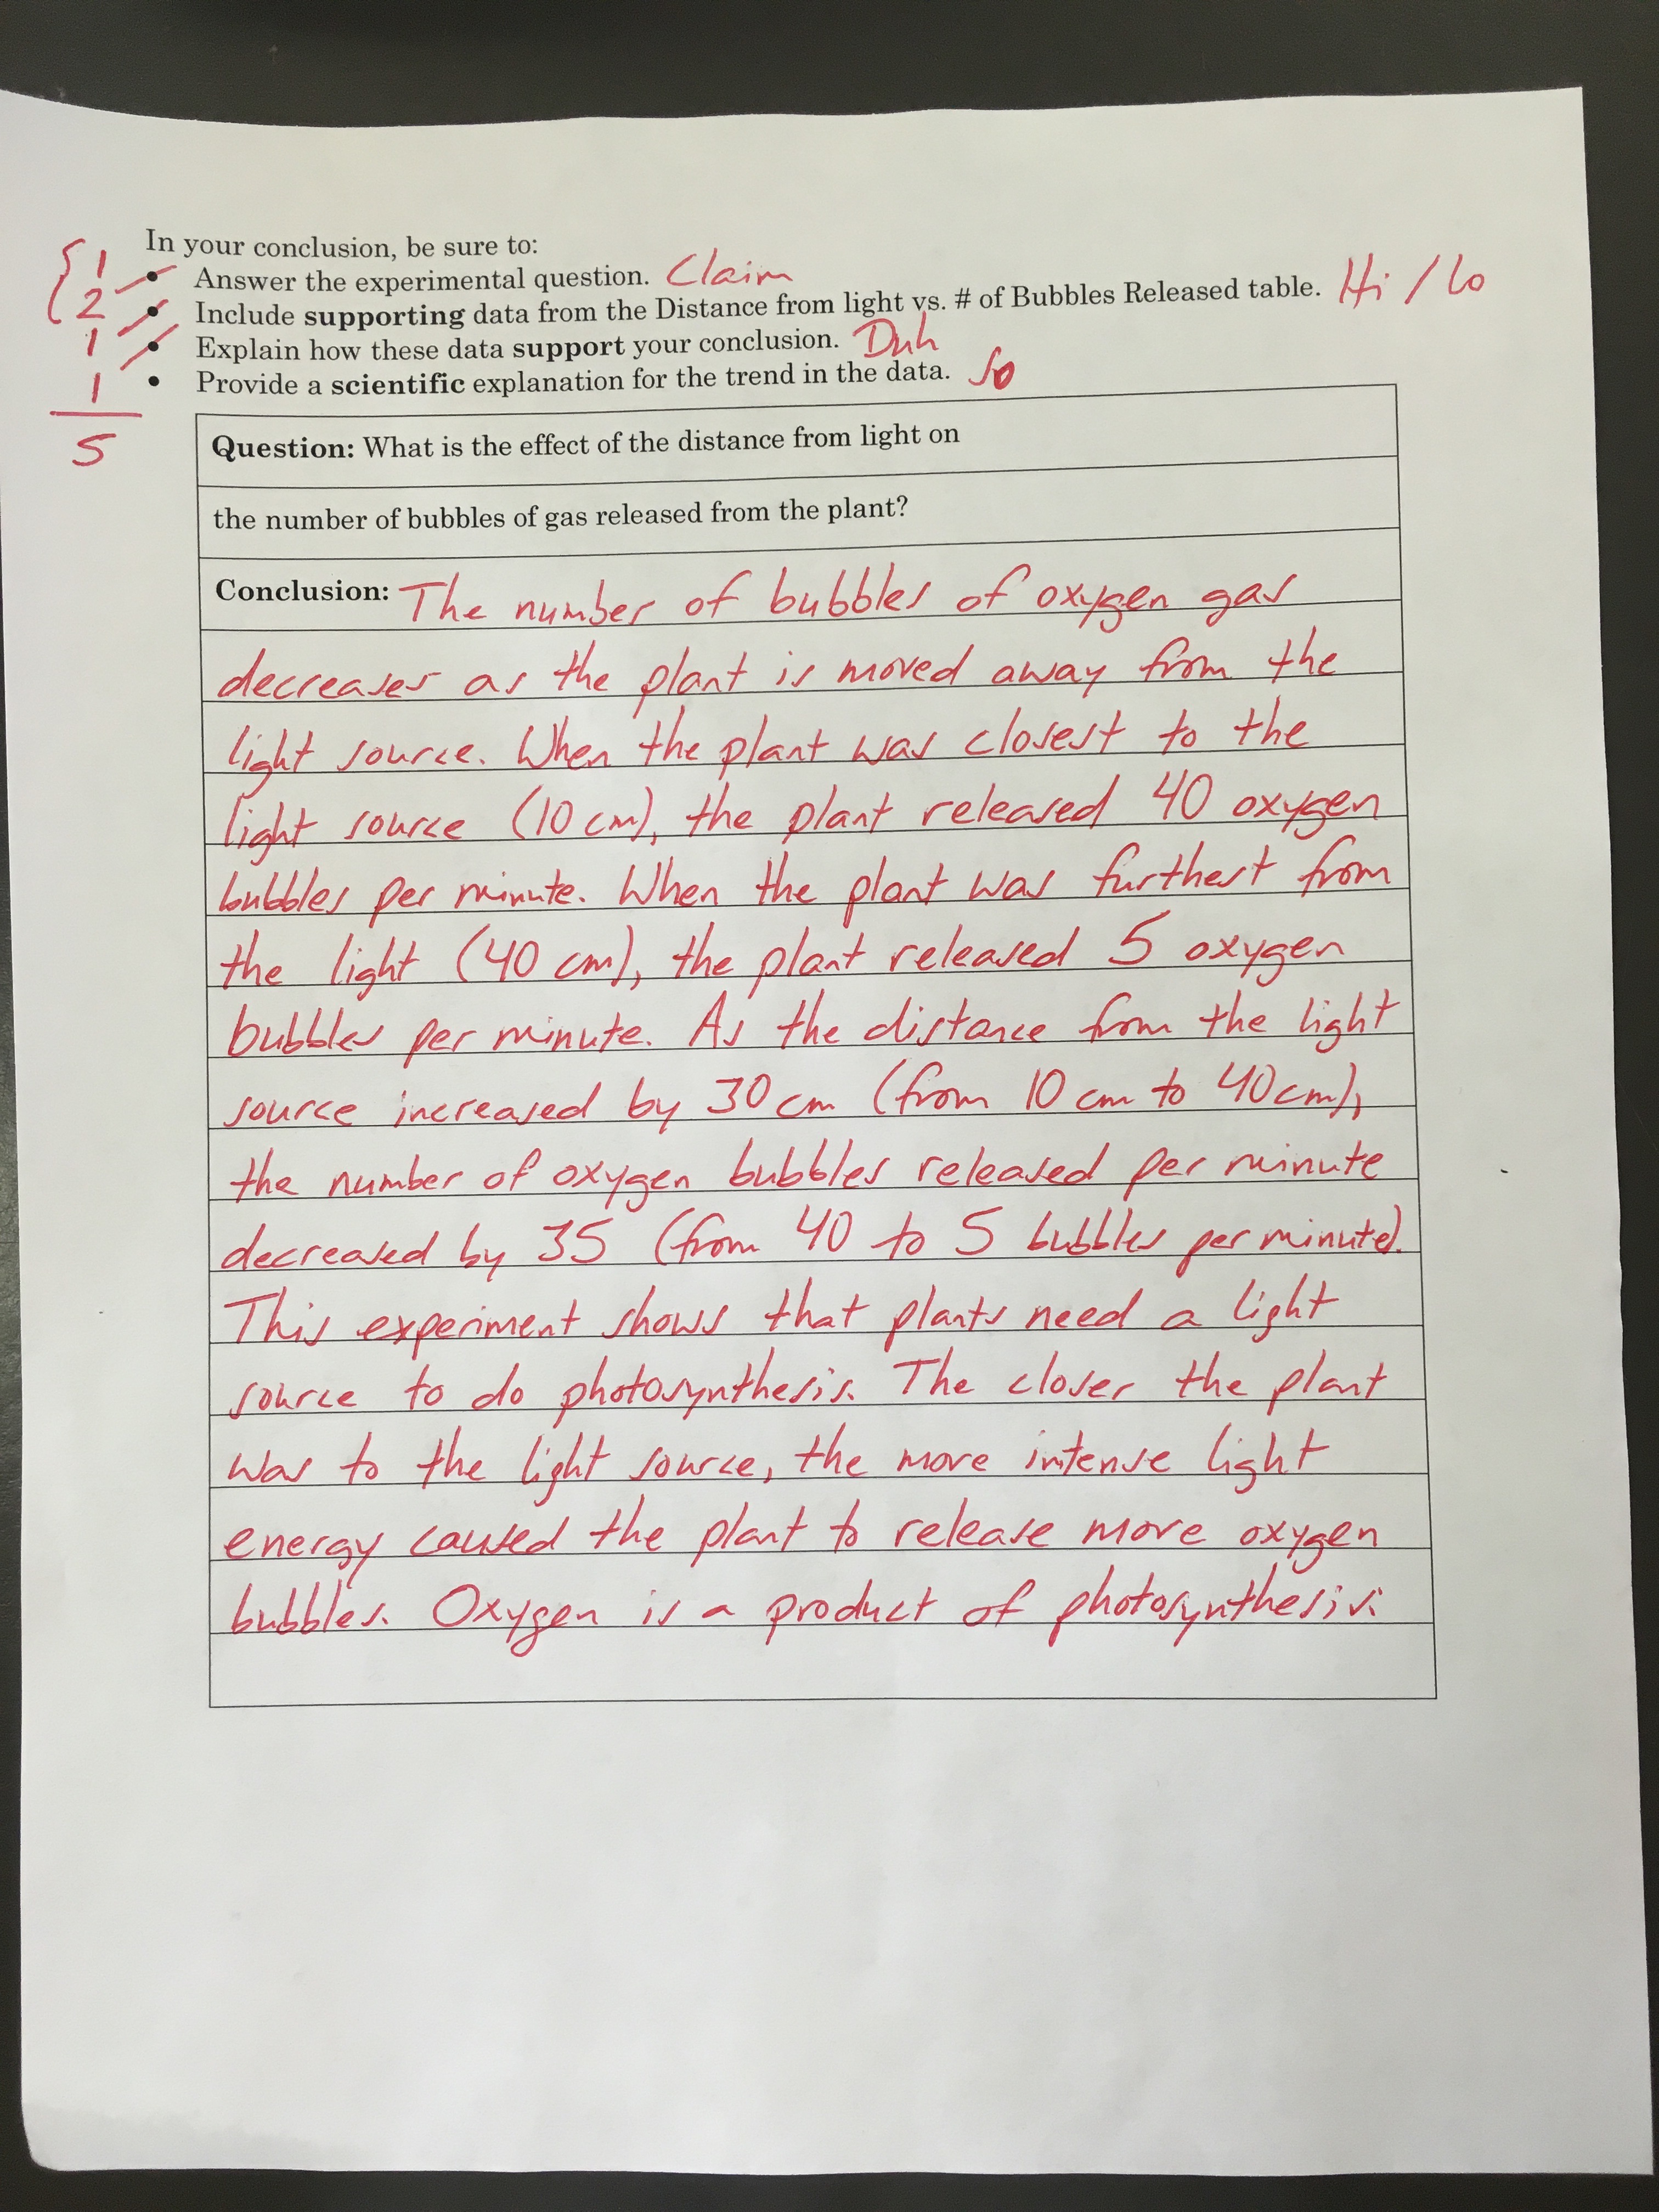 In your conclusion, be sure to:
1 • Answer the experimental question. Claim
2 • Include supporting data from the Distance from light vs. # of Bubbles Released table. Hi / Lo
1 • Explain how these data support your conclusion. Duh
1 • Provide a scientific explanation for the trend in the data. So
5
Question: What is the effect of the distance from light on
the number of bubbles of gas released from the plant?
Conclusion: The number of bubbles of oxygen gas
decreases as the plant is moved away from the
light source. When the plant was closest to the
light source (10 cm), the plant released 40 oxygen
bubbles per minute. When the plant was furthest from
the light (40 cm), the plant released 5 oxygen
bubbles per minute. As the distance from the light
source increased by 30 cm (from 10 cm to 40 cm),
the number of oxygen bubbles released per minute
decreased by 35 (from 40 to 5 bubbles per minute).
This experiment shows that plants need a light
source to do photosynthesis. The closer the plant
was to the light source, the more intense light
energy caused the plant to release more oxygen
bubbles. Oxygen is a product of photosynthesis.